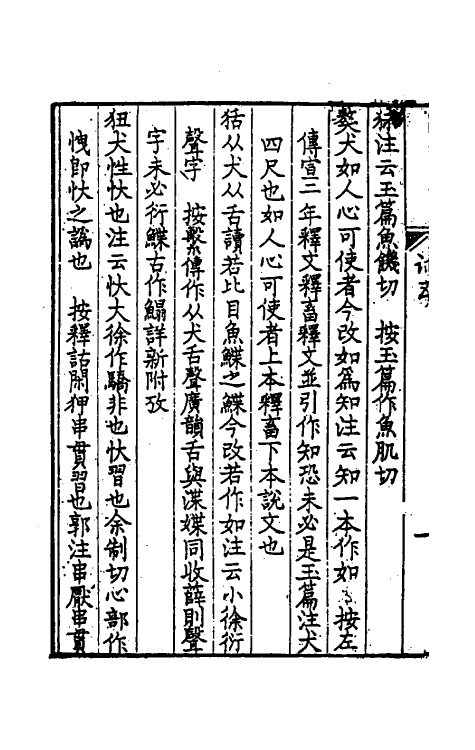 注云玉篇魚饑切　按玉篇作魚肌切
獒犬如人心可使者今改如為知注云知一本作如　按左
傳宣二年釋文釋畜釋文並引作知恐未必是玉篇注犬
四尺也如人心可使者上本釋畜下本說文也
狧从犬从舌讀若比目魚鰈之鰈今改若作如注云小徐衍
聲字　按繫傳作从犬舌聲廣韻舌與渫媟同收薛則聲
字未必衍鰈古作鰨詳新附攷
狃犬性忕也注云忕大徐作驕非也忕習也余制切心部作
愧即忕之譌也　按釋詁閑狎串貫習也郭注串厭串貫